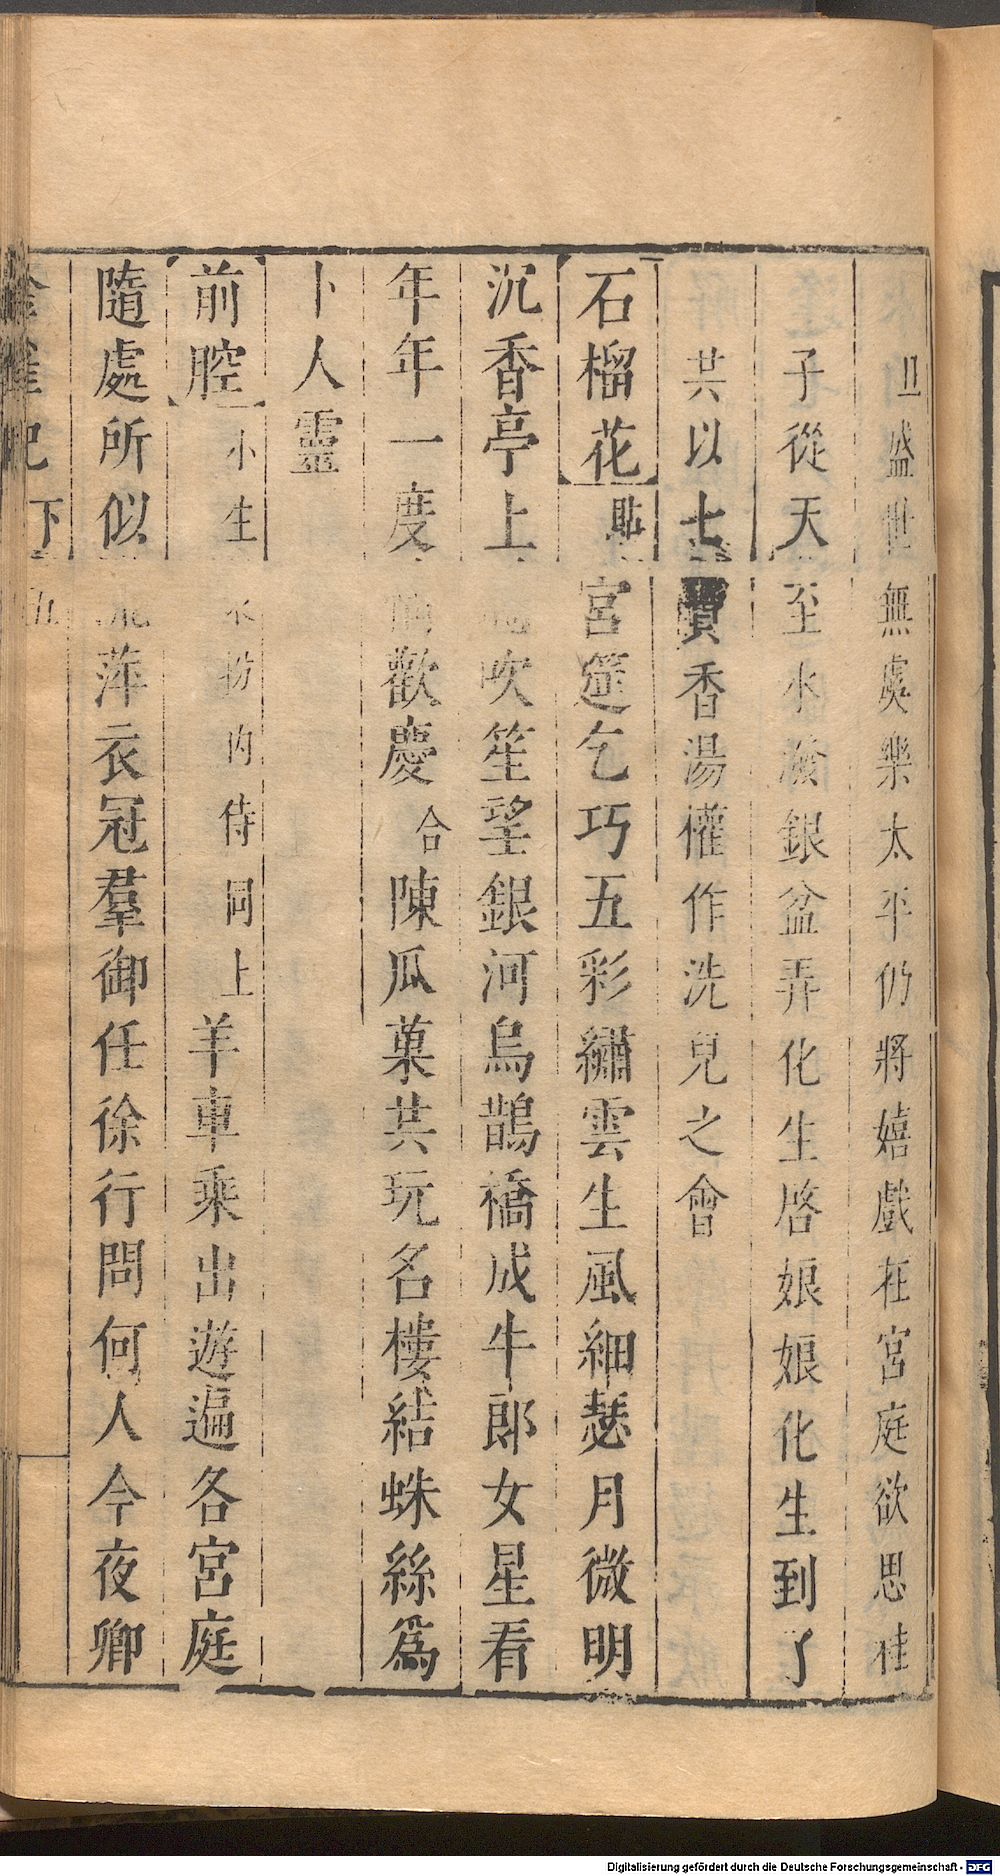 旦盛世無處樂太平仍將嬉戲在宮庭欲思桂
子從天至水潑銀盆弄化生啓娘娘化生到了
共以七寶香湯權作洗兒之會
石榴花貼宮筵乞巧五彩繡雲生風細瑟月微明
沉香亭上吹笙望銀河烏鵲橋成牛郎女星看
年年一度歡慶合陳瓜菓共玩名樓結蛛絲爲
卜人靈
前腔小生扮內侍同上羊車乘出遊遍各宮庭
隨處所似萍衣冠羣御任徐行問何人今夜卿
記下五
Digitalisierung gefördert durch die Deutsche Forschungsgemeinschaft - DFG